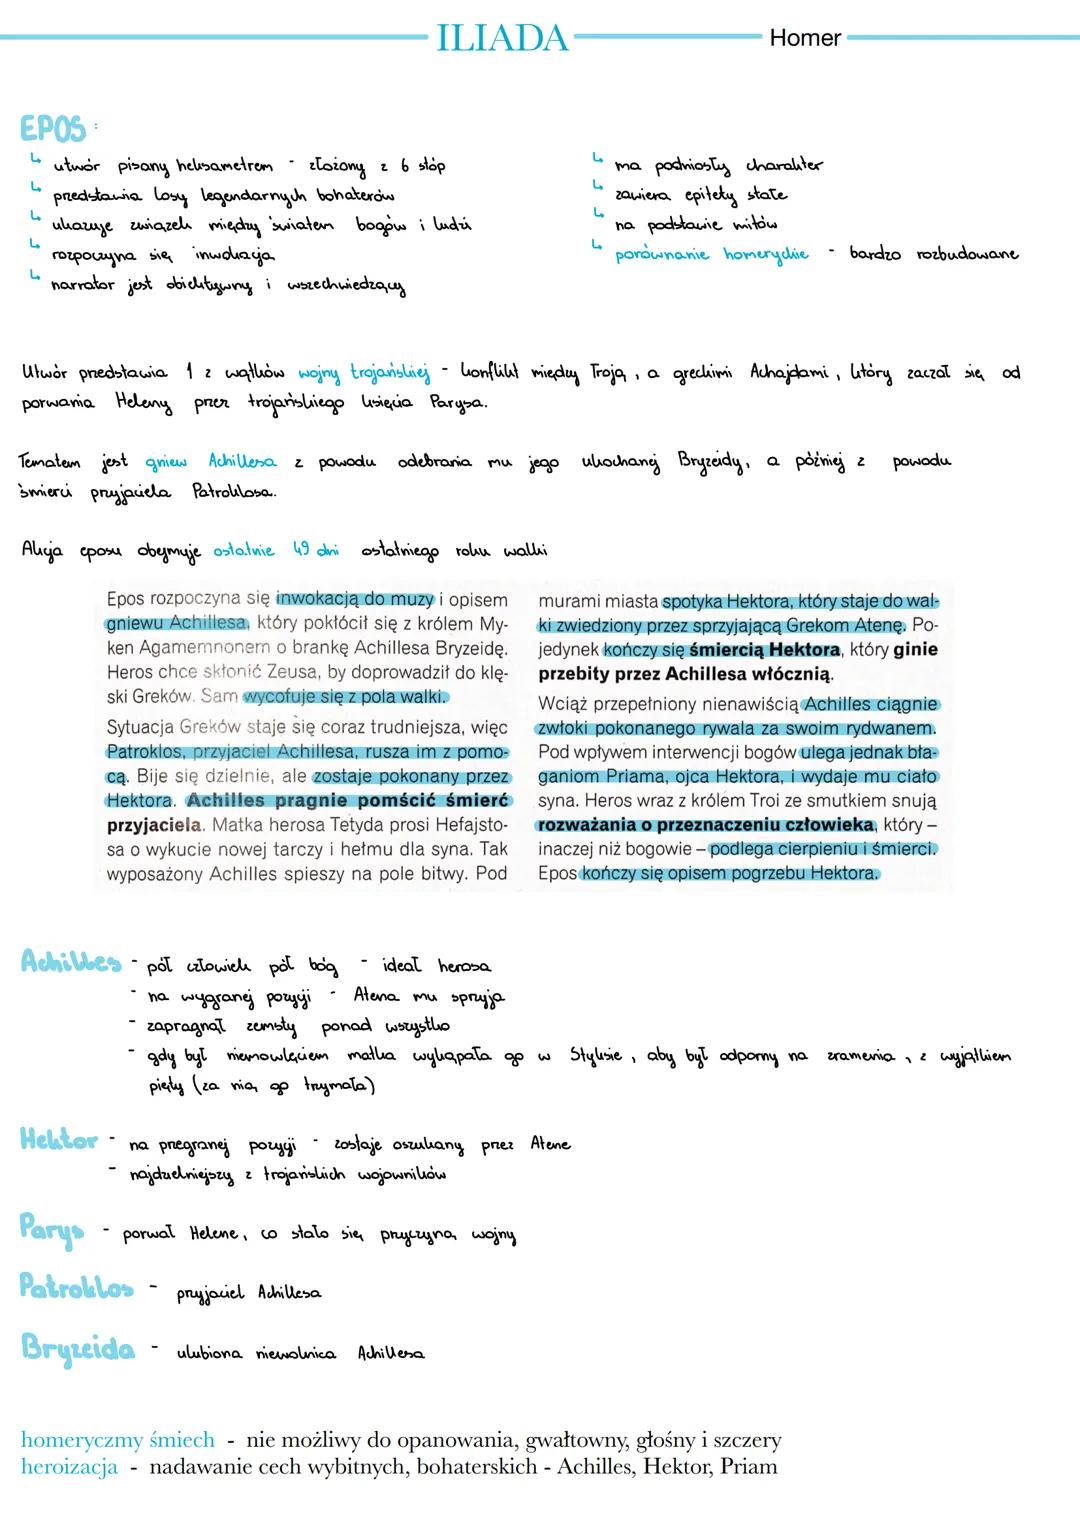 ILIADA
Homer
EPOS:
↳ utwór pisany heksametrem - złożony z 6 stóp
↳ przedstawia losy legendarnych bohaterów
↳ ukazuje związek między światem bogów i ludzi
↳ rozpoczyna się inwokacją
↳ narrator jest obiektywny i wszechwiedzący
↳ ma podniosły charakter
↳ zawiera epitety stałe
↳ na podstawie mitów
↳ porównanie homeryckie - bardzo rozbudowane
Utwór przedstawia 1 z wątków wojny trojańskiej - konflikt między Troją, a greckimi Achajdami, który zaczął się od
porwania Heleny przez trojańskiego księcia Parysa.
Tematem jest gniew Achillesa z powodu odebrania mu jego ukochanej Bryzeidy, a później z powodu
śmierci przyjaciela Patroklosa.
Akcja eposu obejmuje ostatnie 49 dni ostatniego roku walki
Epos rozpoczyna się inwokacją do muzy i opisem
gniewu Achillesa, który pokłócił się z królem My-
ken Agamemnonem o brankę Achillesa Bryzeidę.
Heros chce skłonić Zeusa, by doprowadził do klę-
ski Greków. Sam wycofuje się z pola walki.
Sytuacja Greków staje się coraz trudniejsza, więc
Patroklos, przyjaciel Achillesa, rusza im z pomo-
cą. Bije się dzielnie, ale zostaje pokonany przez
Hektora. Achilles pragnie pomścić śmierć
przyjaciela. Matka herosa Tetyda prosi Hefajsto-
sa o wykucie nowej tarczy i hełmu dla syna. Tak
wyposażony Achilles spieszy na pole bitwy. Pod
murami miasta spotyka Hektora, który staje do wal-
ki zwiedziony przez sprzyjającą Grekom Atenę. Po-
jedynek kończy się śmiercią Hektora, który ginie
przebity przez Achillesa włócznią.
Wciąż przepełniony nienawiścią Achilles ciągnie
zwłoki pokonanego rywala za swoim rydwanem.
Pod wpływem interwencji bogów ulega jednak bła-
ganiom Priama, ojca Hektora, i wydaje mu ciało
syna. Heros wraz z królem Troi ze smutkiem snują
rozważania o przeznaczeniu człowieka, który –
inaczej niż bogowie – podlega cierpieniu i śmierci.
Epos kończy się opisem pogrzebu Hektora.
Achilles - pół człowiek pół bóg - ideał herosa
- na wygranej pozycji - Atena mu sprzyja
- zapragnął zemsty ponad wszystko
- gdy był niemowlęciem matka wykąpała go w Styksie, aby był odporny na zranienia, z wyjątkiem
pięty (za nią go trzymała)
Hektor - na przegranej pozycji - zostaje oszukany przez Atene
- najdzielniejszy z trojańskich wojowników
Parys - porwał Helene, co stało się przyczyną wojny
Patroklos - przyjaciel Achillesa
Bryzeida - ulubiona niewolnica Achillesa
homeryczmy śmiech - nie możliwy do opanowania, gwałtowny, głośny i szczery
heroizacja - nadawanie cech wybitnych, bohaterskich - Achilles, Hektor, Priam